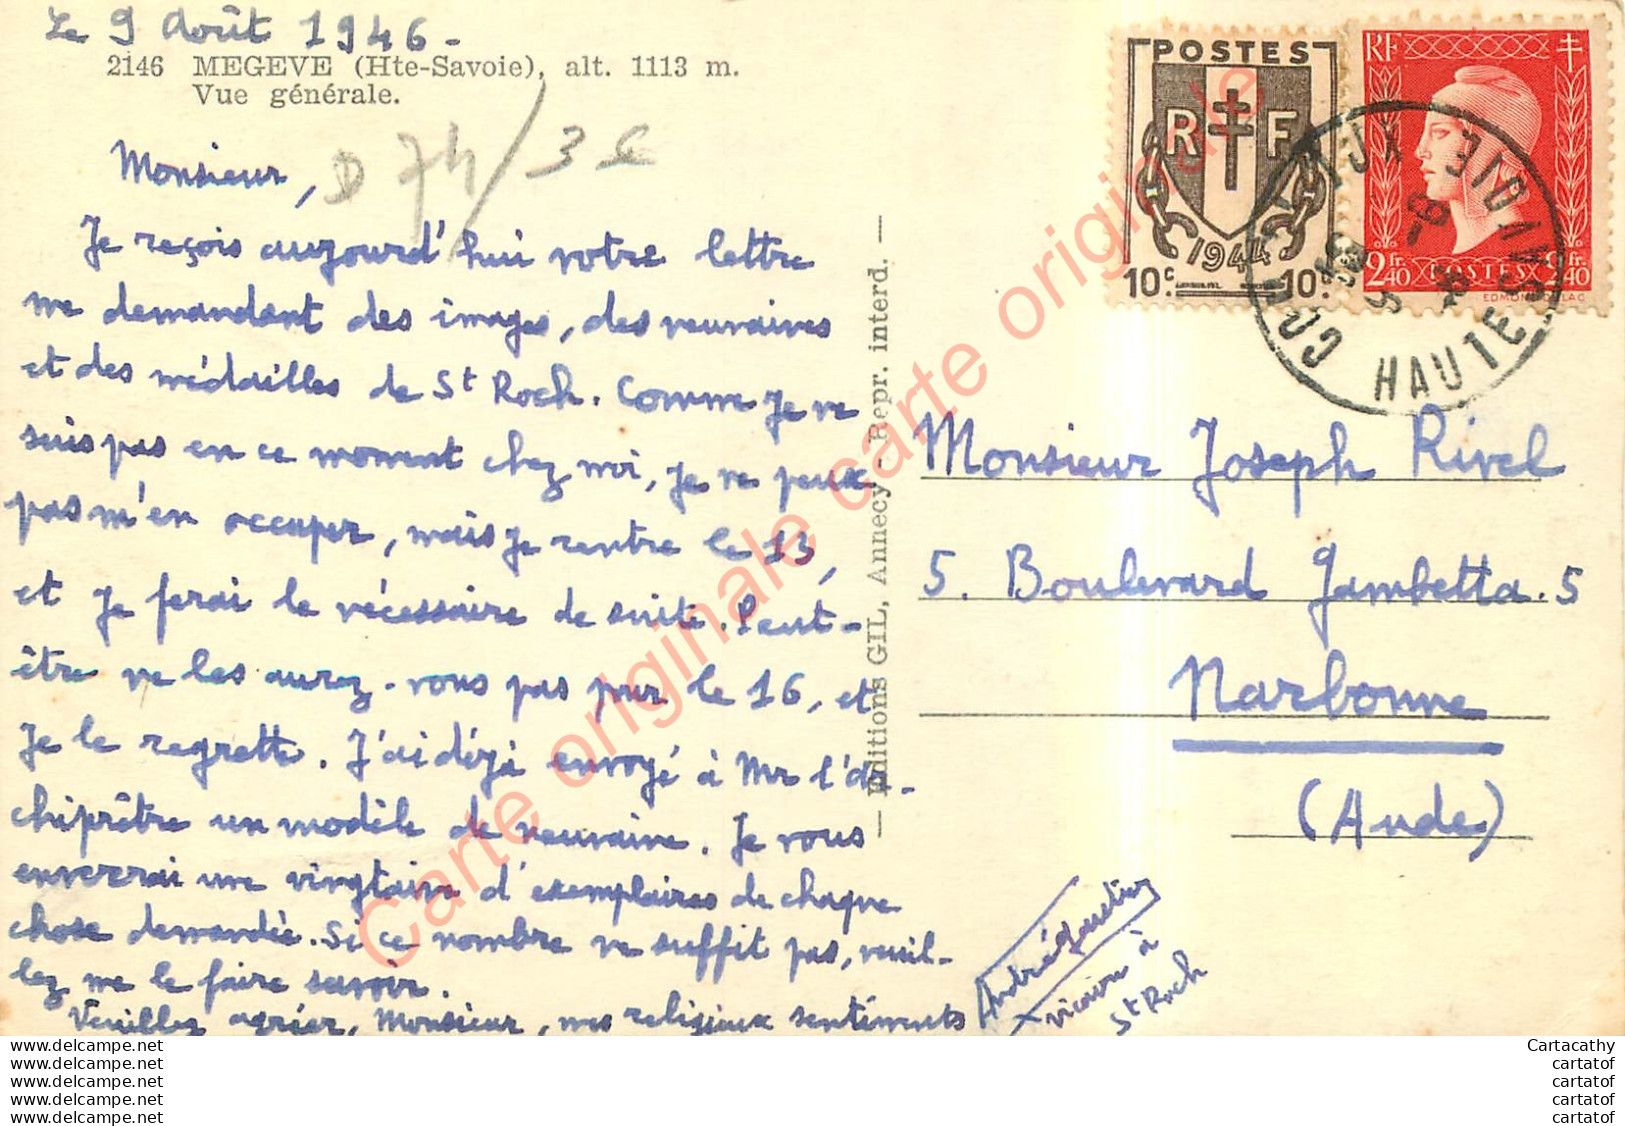 Le 9 Août 1946 -
2146 MEGEVE (Hte-Savoie), alt. 1113 m.
Vue générale.
D 74/3 €
Monsieur,
Je reçois aujourd'hui votre lettre
me demandant des images, des neuvaines
et des médailles de St Roch. Comme je ne
suis pas en ce moment chez moi, je ne peux
pas m'en occuper, mais je rentre le 13,
et je ferai le nécessaire de suite. Peut-
être ne les aurez-vous pas pour le 16, et
je le regrette. J'ai déjà envoyé à Mr l'ar-
chiprêtre un modèle de neuvaine. Je vous
enverrai une vingtaine d'exemplaires de chaque
chose demandée. Si ce nombre ne suffit pas, veuil-
lez me le faire savoir.
Veuillez agréer, Monsieur, mes religieux sentiments
vicaire à
St Roch
Editions GIL, Annecy - Repr. interd. -
POSTES
R F
1944
10c. 10c.
RF
2fr.40 POSTES 2fr.40
EDMOND DULAC
HAUTE SAVOIE
Monsieur Joseph Rivel
5. Boulevard Gambetta. 5
Narbonne
(Aude)
Carte originale carte originale
www.delcampe.net
www.delcampe.net
www.delcampe.net
www.delcampe.net
www.delcampe.net
Cartacathy
cartatof
cartatof
cartatof
cartatof